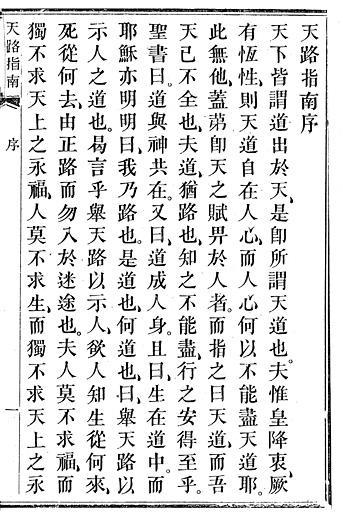 天路指南序
天下皆謂道出於天、是卽所謂天道也。夫惟皇降衷、厥
有恆性、則天道自在人心、而人心何以不能盡天道耶。
此無他、蓋第卽天之賦畀於人者、而指之曰天道、而吾
天已不全也、夫道、猶路也、知之不能盡、行之安得至乎。
聖書曰、道與神共在、又曰、道成人身、且曰、生在道中、而
耶穌亦明明曰、我乃路也、是道也、何道也、曰、舉天路以
示人之道也、曷言乎舉天路以示人、欲人知生從何來、
死從何去、由正路而勿入於迷途也。夫人莫不求福、而
獨不求天上之永福、人莫不求生、而獨不求天上之永
天路指南
序
一